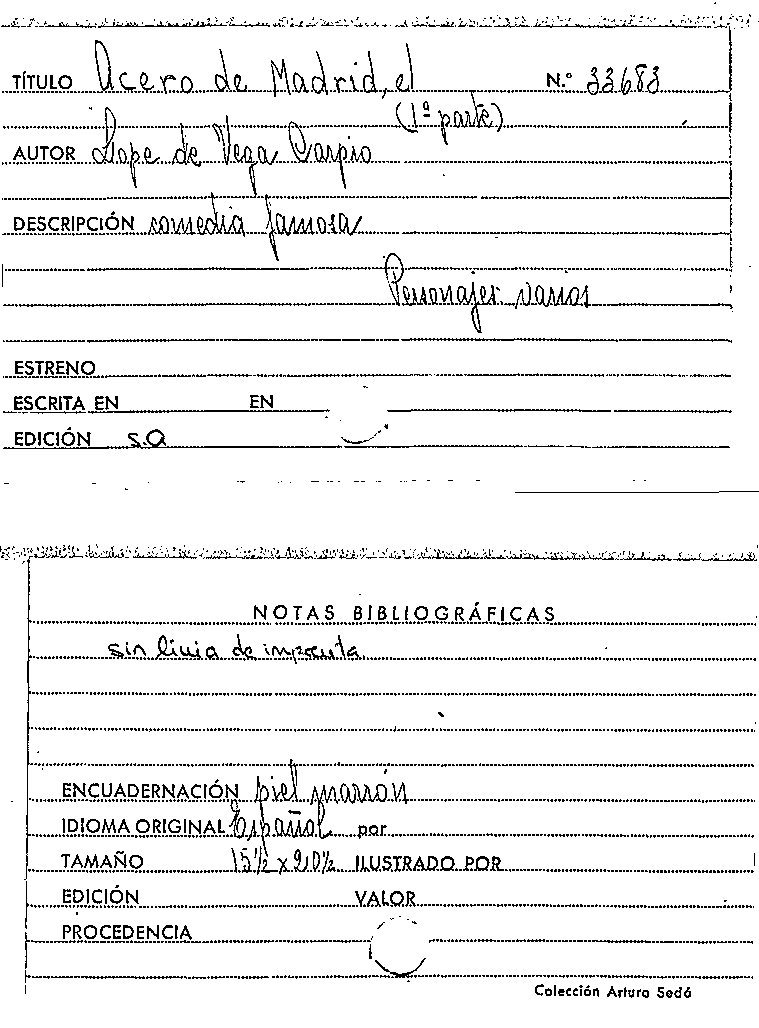 TÍTULO Acero de Madrid, el N.º 33683
(1ª parte)
AUTOR Lope de Vega Carpio
DESCRIPCIÓN comedia famosa
Personajes: varios
ESTRENO
ESCRITA EN EN
EDICIÓN s.a
NOTAS BIBLIOGRÁFICAS
sin linia de imprenta
ENCUADERNACIÓN piel marrón
IDIOMA ORIGINAL Español por
TAMAÑO 15½ x 20½ ILUSTRADO POR
EDICIÓN VALOR
PROCEDENCIA
Colección Arturo Sedó